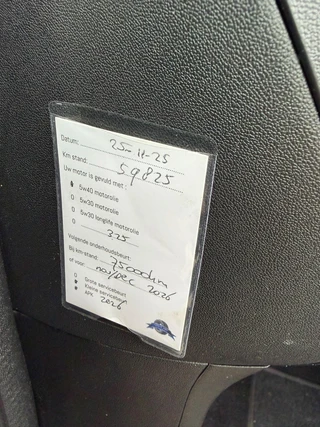 Datum: 25-11-25
Km stand: 59825
Uw motor is gevuld met:
5w40 motorolie
0 5w30 motorolie
0 5w30 longlife motorolie
0 3.25
Volgende onderhoudsbeurt:
Bij km-stand: 75000km/
of voor: nov/dec 2026
0 Grote servicebeurt
Kleine servicebeurt
APK 2026